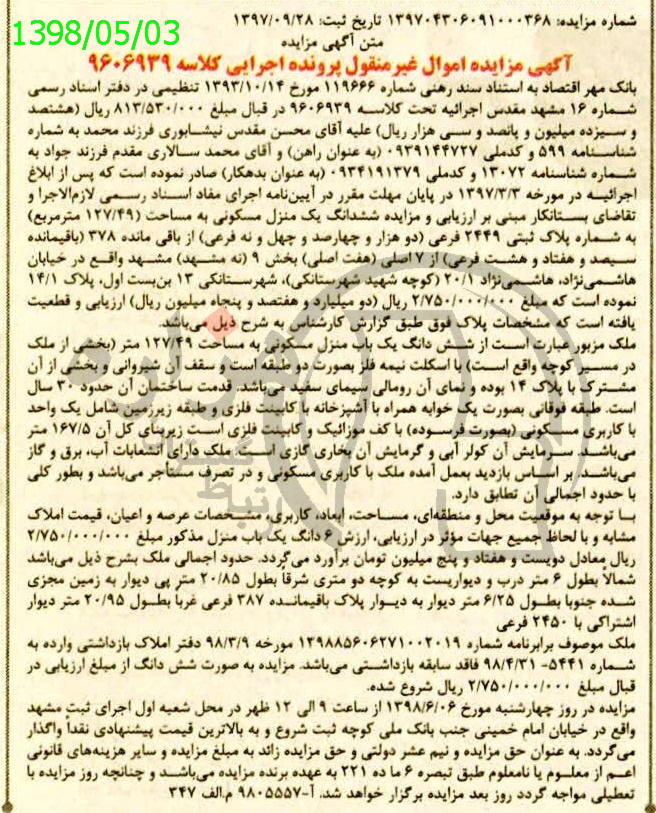 1398/05/03
شماره مزایده: ۱۳۹۷۰۴۳۰۶۰۹۱۰۰۰۳۶۸ تاریخ ثبت: ۱۳۹۷/۰۹/۲۸
متن آگهی مزایده
آگهی مزایده اموال غیرمنقول پرونده اجرایی کلاسه ۹۶۰۶۹۳۹
بانک مهر اقتصاد به استناد سند رهنی شماره ۱۱۹۶۶۶ مورخ ۱۳۹۳/۱۰/۱۴ تنظیمی در دفتر اسناد رسمی
شماره ۱۶ مشهد مقدس اجرائیه تحت کلاسه ۹۶۰۶۹۳۹ در قبال مبلغ ۸۱۳/۵۳۰/۰۰۰ ریال (هشتصد
و سیزده میلیون و پانصد و سی هزار ریال) علیه آقای محسن مقدس نیشابوری فرزند محمد به شماره
شناسنامه ۵۹۹ و کدملی ۰۹۳۹۱۴۴۷۲۷ (به عنوان راهن) و آقای محمد سالاری مقدم فرزند جواد به
شماره شناسنامه ۱۳۰۷۲ و کدملی ۰۹۳۴۱۹۱۳۷۹ (به عنوان بدهکار) صادر نموده است که پس از ابلاغ
اجرائیه در مورخه ۱۳۹۷/۳/۳ در پایان مهلت مقرر در آیین‌نامه اجرای مفاد اسناد رسمی لازم‌الاجرا و
تقاضای بستانکار مبنی بر ارزیابی و مزایده ششدانگ یک منزل مسکونی به مساحت (۱۲۷/۴۹ مترمربع)
به شماره پلاک ثبتی ۲۴۴۹ فرعی (دو هزار و چهارصد و چهل و نه فرعی) از باقی مانده ۳۷۸ (باقیمانده
سیصد و هفتاد و هشت فرعی) از ۷ اصلی (هفت اصلی) بخش ۹ (نه مشهد) مشهد واقع در خیابان
هاشمی‌نژاد، هاشمی‌نژاد ۲۰/۱ (کوچه شهید شهرستانکی)، شهرستانکی ۱۳ بن‌بست اول، پلاک ۱۴/۱
نموده است که مبلغ ۲/۷۵۰/۰۰۰/۰۰۰ ریال (دو میلیارد و هفتصد و پنجاه میلیون ریال) ارزیابی و قطعیت
یافته است که مشخصات پلاک فوق طبق گزارش کارشناس به شرح ذیل می‌باشد.
ملک مزبور عبارت است از شش دانگ یک باب منزل مسکونی به مساحت ۱۲۷/۴۹ متر (بخشی از ملک
در مسیر کوچه واقع است) با اسکلت نیمه فلز بصورت دو طبقه است و سقف آن شیروانی و بخشی از آن
مشترک با پلاک ۱۴ بوده و نمای آن رومالی سیمای سفید می‌باشد. قدمت ساختمان آن حدود ۳۰ سال
است. طبقه فوقانی بصورت یک خوابه همراه با آشپزخانه با کابینت فلزی و طبقه زیرزمین شامل یک واحد
با کاربری مسکونی (بصورت فرسوده) با کف موزائیک و کابینت فلزی است زیربنای کل آن ۱۶۷/۵ متر
می‌باشد. سرمایش آن کولر آبی و گرمایش آن بخاری گازی است. ملک دارای انشعابات آب، برق و گاز
می‌باشد. بر اساس بازدید بعمل آمده ملک با کاربری مسکونی و در تصرف مستأجر می‌باشد و بطور کلی
با حدود اجمالی آن تطابق دارد.
با توجه به موقعیت محل و منطقه‌ای، مساحت، ابعاد، کاربری، مشخصات عرصه و اعیان، قیمت املاک
مشابه و با لحاظ جمیع جهات مؤثر در ارزیابی، ارزش ۶ دانگ یک باب منزل مذکور مبلغ ۲/۷۵۰/۰۰۰/۰۰۰
ریال معادل دویست و هفتاد و پنج میلیون تومان برآورد می‌گردد. حدود اجمالی ملک بشرح ذیل می‌باشد
شمالاً بطول ۶ متر درب و دیواریست به کوچه دو متری شرقاً بطول ۲۰/۸۵ متر پی دیوار به زمین مجزی
شده جنوبا بطول ۶/۲۵ متر دیوار به دیوار پلاک باقیمانده ۳۸۷ فرعی غرباً بطول ۲۰/۹۵ متر دیوار
اشتراکی با ۲۴۵۰ فرعی
ملک موصوف برابرنامه شماره ۱۳۹۸۸۵۶۰۶۲۷۱۰۰۲۰۱۹ مورخه ۹۸/۳/۹ دفتر املاک بازداشتی وارده به
شماره ۵۴۴۱- ۹۸/۴/۳۱ فاقد سابقه بازداشتی می‌باشد. مزایده به صورت شش دانگ از مبلغ ارزیابی در
قبال مبلغ ۲/۷۵۰/۰۰۰/۰۰۰ ریال شروع شده.
مزایده در روز چهارشنبه مورخ ۱۳۹۸/۶/۰۶ از ساعت ۹ الی ۱۲ ظهر در محل شعبه اول اجرای ثبت مشهد
واقع در خیابان امام خمینی جنب بانک ملی کوچه ثبت شروع و به بالاترین قیمت پیشنهادی نقداً واگذار
می‌گردد. به عنوان حق مزایده و نیم عشر دولتی و حق مزایده زائد به مبلغ مزایده و سایر هزینه‌های قانونی
اعم از معلوم یا نامعلوم طبق تبصره ۶ ما ده ۲۲۱ به عهده برنده مزایده می‌باشد و چنانچه روز مزایده با
تعطیلی مواجه گردد روز بعد مزایده برگزار خواهد شد. آ-۹۸۰۵۵۵۷ م.الف ۳۴۷